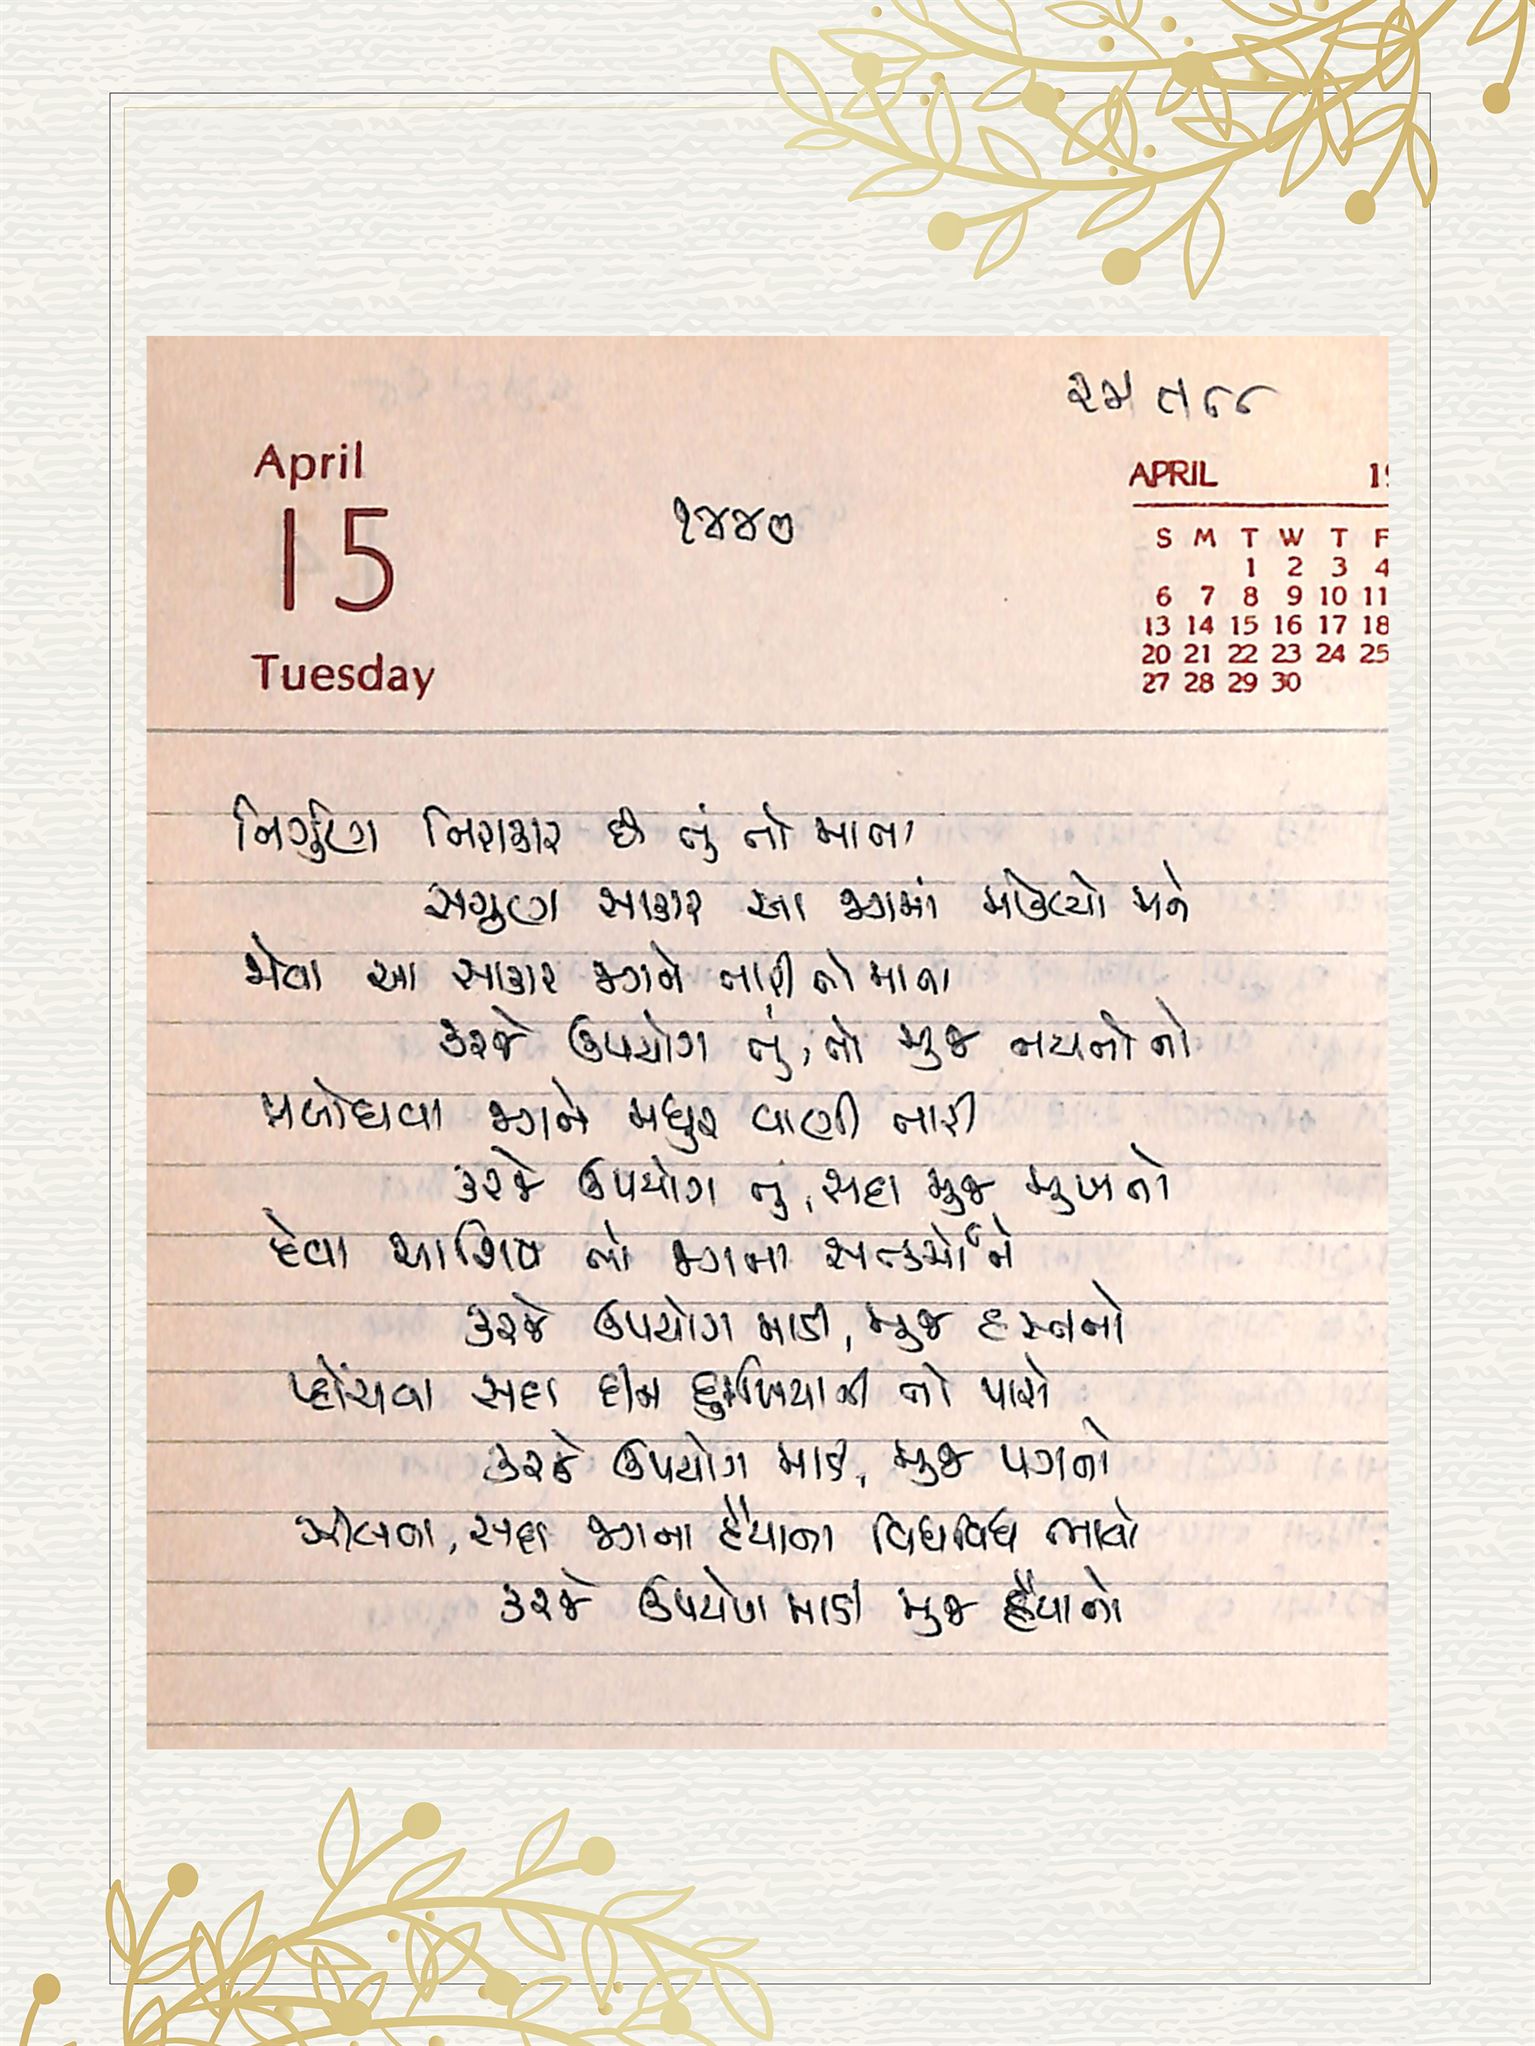 April
15
Tuesday
૧૪૪૭
APRIL
S M T W T F
1 2 3 4
6 7 8 9 10 11
13 14 15 16 17 18
20 21 22 23 24 25
27 28 29 30
નિર્ગુણ નિરાકાર છે તું તો માતા
સગુણ સાકાર આ જગમાં મોકલ્યો મને
જોવા આ સાકાર જગને તારી તો માતા
કરજે ઉપયોગ તું, તો મુજ નયનોનો
પ્રબોધવા જગને મધુર વાણી તારી
કરજે ઉપયોગ તું, સદા મુજ મુખનો
દેવા આશિષ તો જગના સત્કર્મોને
કરજે ઉપયોગ માડી, મુજ હસ્તનો
પ્હોંચવા સદા દીન દુઃખિયાની તો પાસે
કરજે ઉપયોગ માડી, મુજ પગનો
ઝીલવા, સદા જગના હૈયાના વિધવિધ ભાવો
કરજે ઉપયોગ માડી મુજ હૈયાનો